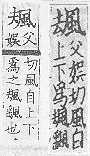 颫
父娱切風自
上下爲颫颻
颫
父娱
切風自上下
爲之颫颻也